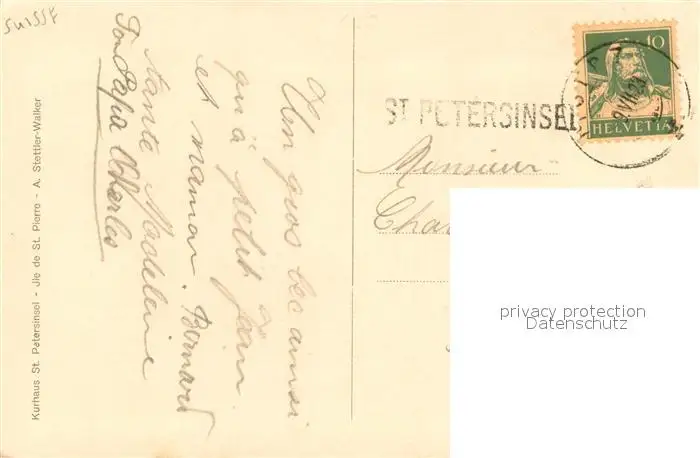 SUISSE
Kurhaus St. Petersinsel - Jle de St. Pierre - A. Stettler-Walker
Un gros bec ainsi
qu'à petit Jean
et maman. Bernard
tante Madeleine
Ton Papa Charles
10
HELVETIA
ST. PETERSINSEL
Monsieur
Cha
privacy protection
Datenschutz